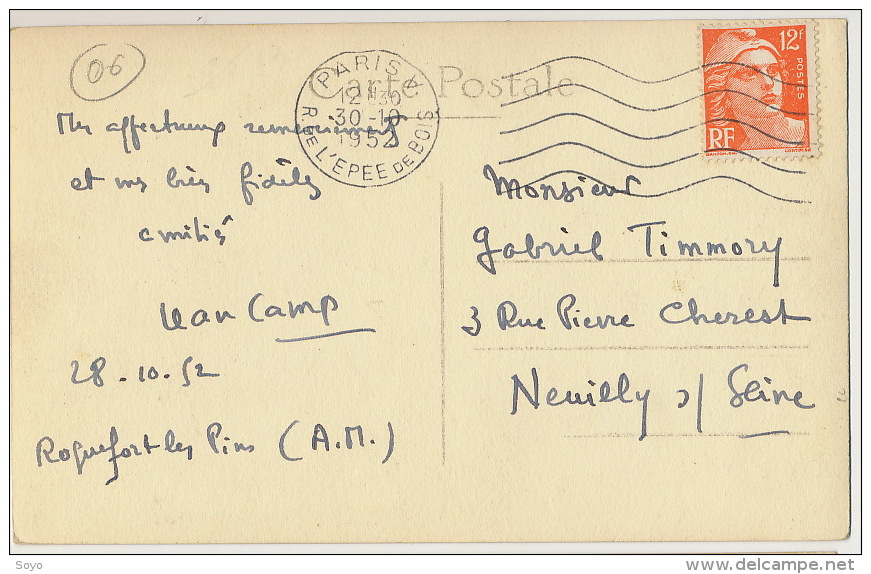 06
Carte Postale
PARIS V
12H30
30-10
1952
R. DE L'EPEE DE BOIS
12F
POSTES
RF
Mes affectueux remerciements
et mes très fidèles
amitiés
Jean Camp
28.10.52
Roquefort les Pins (A.M.)
Monsieur
Gabriel Timmory
3 Rue Pierre Cherest
Neuilly s/ Seine
Soyo
www.delcampe.net